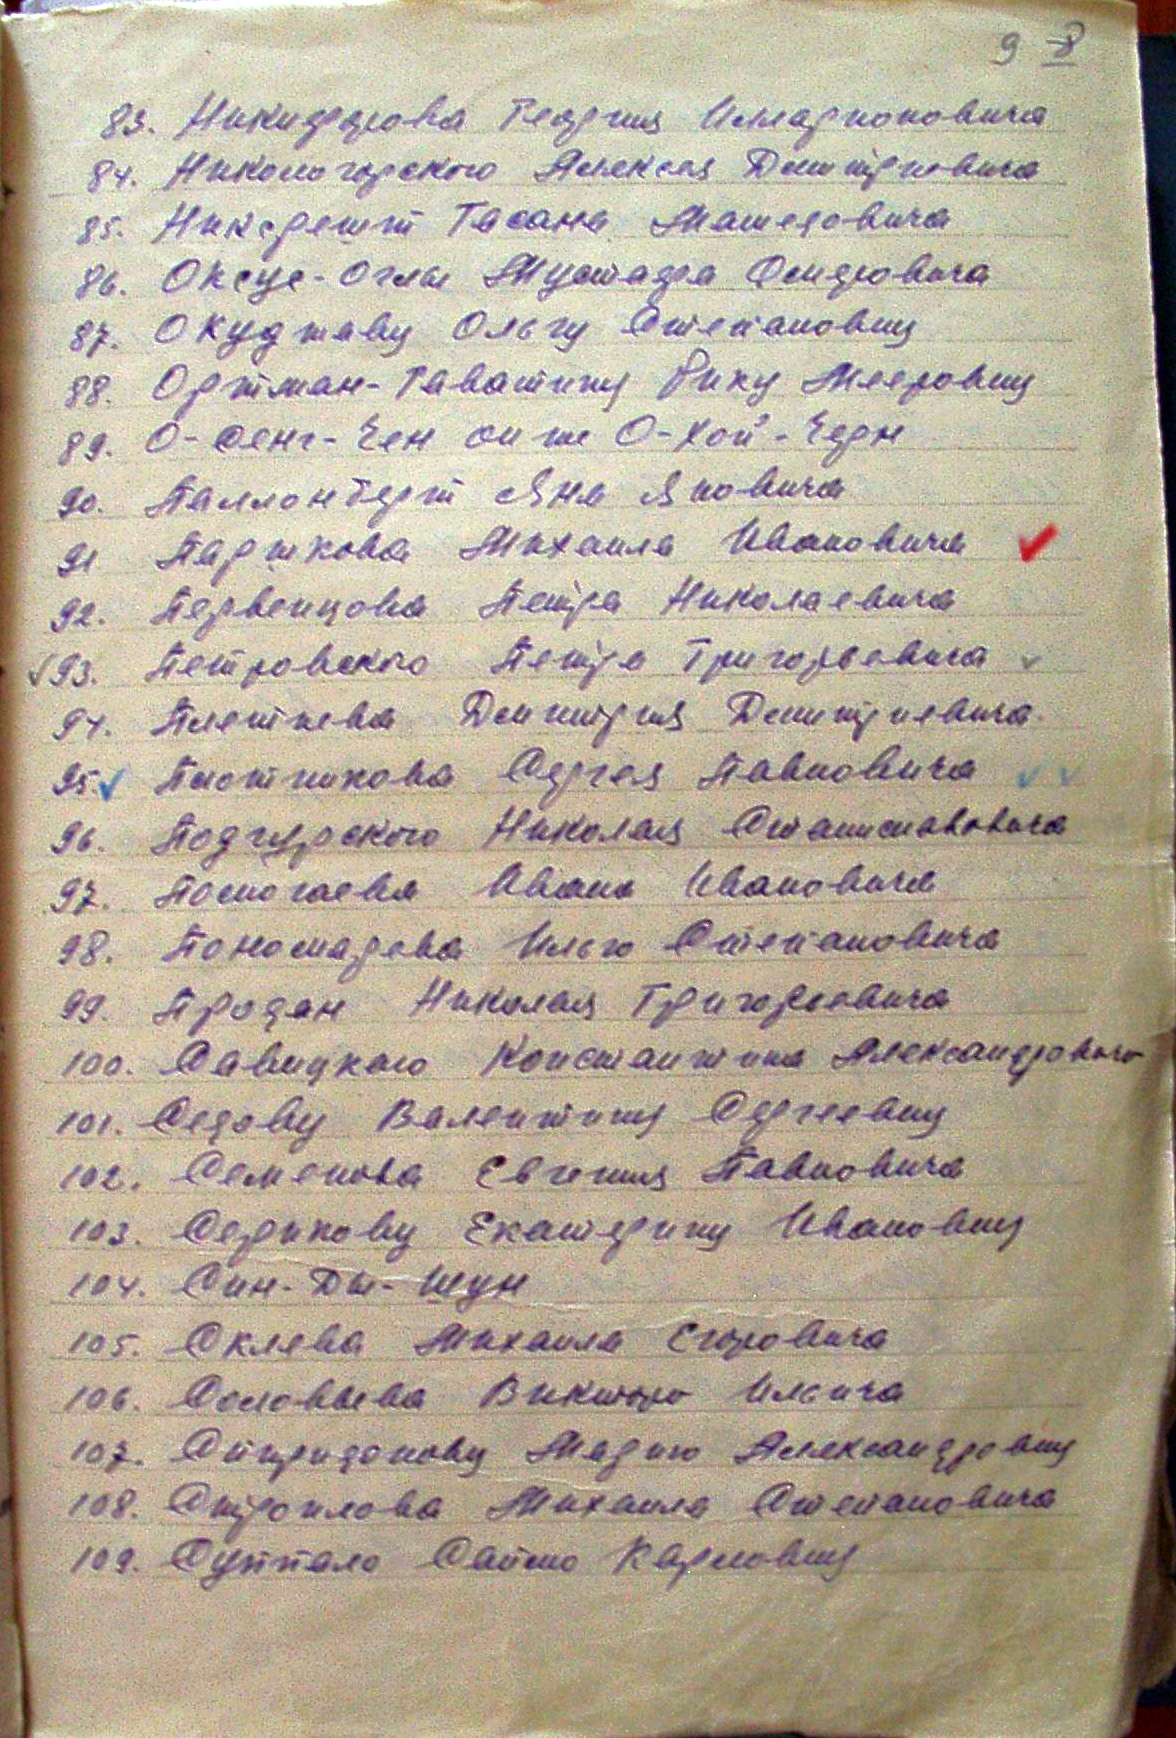 9 8
83. Никифорова Георгия Илларионовича
84. Никологорского Алексея Дмитриевича
85. Тасана Мамедовича
86. Оксуз-Оглы Мустафа
87. Окуджаву Ольгу Степановну
88. Ортман- Рику Мееровну
89. О-Сенг-Чен он же О-Хой-Черн
90. Паллонберг Яна Яновича
91 Паршкова Михаила Ивановича
92. Первенцова Петра Николаевича
93. Петровского Петра Григорьевича
94. Плетнева Дмитрия Дмитриевича
95. Плотникова Сергея Павловича
96. Подгурского Николая Станиславовича
97. Помогаева Ивана Ивановича
98. Пономарева Илью Степановича
99. Продан Николая Григорьевича
100. Савицкого Константина Александровича
101. Седову Валентину Сергеевну
102. Семенова Евгения Павловича
103. Серикову Екатерину Ивановну
104. Син-Ды-Шун
105. Склява Михаила Егоровича
106. Соловьева Виктора Ильича
107. Спиридонову Марию Александровну
108. Строилова Михаила Степановича
109. Суппало Саймо Карловну